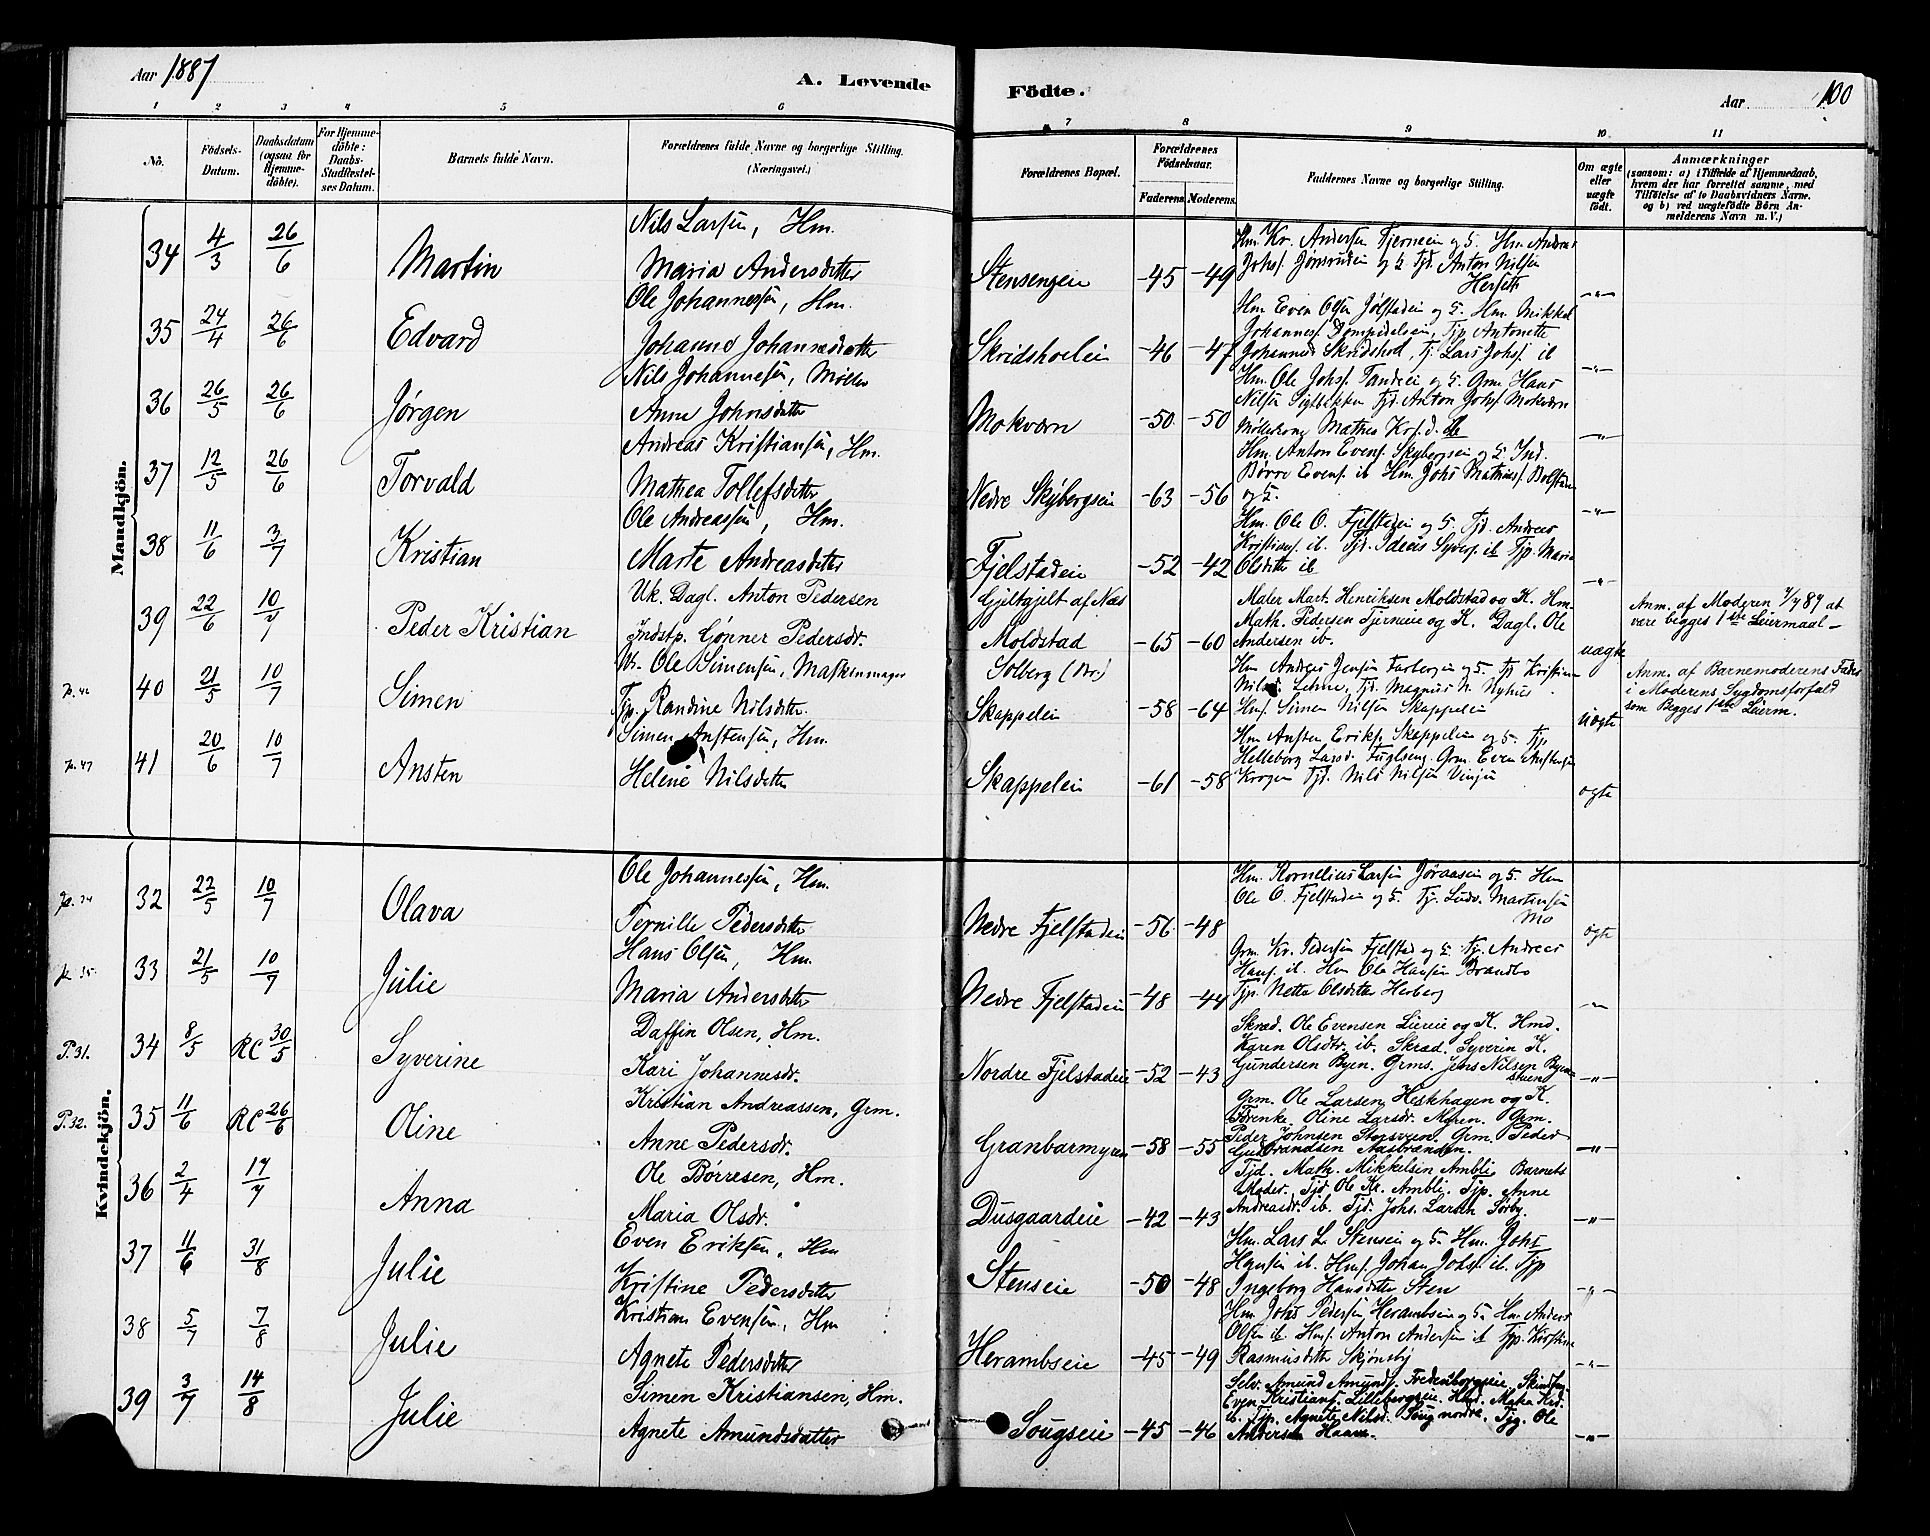 Aar 1887
A. Levende
Födte.
Aar 100
1 2 3 4 5 6 7 8 9 10 11
No.
Födsels-Datum.
Daabsdatum (ogsaa for Hjemme-döbte).
For Hjemme-döbte: Daabs-Stadfæstel-ses Datum.
Barnets fulde Navn.
Forældrenes fulde Navne og borgerlige Stilling. (Næringsvei.)
Forældrenes Bopæl.
Forældrenes Födselsaar.
Faderens Moderens
Faddernes Navne og borgerlige Stilling.
Om ægte eller uægte födt.
Anmærkninger
(saasom: a) i Tilfælde af Hjemmedaab,
hvem der har forrettet samme, med
Tilföielse af to Daabsvidners Navne.
og b) ved uægtefödte Börn An-
melderens Navn m. V.)
Mandkjön.
34 4/3 26/6 Martin
Nils Larsen, Hm.
Maria Andersdatter
Stensengen -45 -49
Hm. Kr. Andersen Tjerneie og K. Hm. Andreas
Johs. Jønsrudei og K. Tjd. Anton Nilsen
Herset
-"-
35 24/4 26/6 Edvard
Ole Johannessen, Hm.
Johanne Johannesdatter
Skridsholei -46 -47
Hm Even Olsen Jølstadei og K. Hm. Mikkel
Johannes. Dompidelsei, Tjp Antonette
Johannesd. Skridshol, Tj. Lars Johs. ib
-"-
36 26/5 26/6 Jørgen
Nils Johannesen, Møller
Anne Johnsdatter
Mokværn -50 -50
Hm. Ole Johs. Tandei og K. Grm. Hans
Nilsen Sigtbakken Tjd. Anton Johs. Mokværn
Møllerkone Mathea Krs.d. ib
-"-
37 12/5 26/6 Torvald
Andreas Kristiansen, Hm.
Mathea Tollefsdatter
Nedre Skybergsei -63 -56
Hm. Anton Evens. Skybergsei og K. Ind.
Børre Evens. ib Hm. Johs Mathias. Bolstadei
og K.
-"-
38 11/6 3/7 Kristian
Ole Andreassen, Hm.
Marte Andreasdatter
Fjelstadeie -52 -42
Hm. Ole O. Fjelstadei og K. Tjd Andreas
Kristians. ib. Tjd. Ideus Syvers. ib Tjp. Maria
Olsdatter ib
-"-
39 22/6 10/7 Peder Kristian
Uk. Dagl. Anton Pedersen
Indstp. Gønner Pedersdr.
Gjeltgjelt af Næs
Moldstad -65 -60
Maler Mart. Henriksen Moldstad og K. Hm.
Math. Pedersen Tjerneie og K. Dagl. Ole
Andersen ib.
uægte
Anm. af Moderen 7/7 87 at
være begges 1ste Leiermaal -
p. 46 40 21/5 10/7 Simen
Uk. Ole Simensen, Maskinmager
Tjp. Randine Nilsdatter
Solberg (Br.)
Skappelei -58 -64
Hm Andreas Jensen Farbergei og K. Tjp Kristian
Nilsd. Lehne, Tjd. Magnus N. Nyhus
Hmf. Simen Nilsen Skappelei
uægte
Anm. af Barnemoderens Fader
i Moderens Sygdomsforfald
som Begges 1ste Leierm.
p. 47 41 20/6 10/7 Ansten
Simen Anstensen, Hm.
Helene Nilsdatter
Skappelei -61 -58
Hm Ansten Eriks. Skappelei og K. Tjp
Helleborg Larsd. Fuglseng. Grm. Even Anstensen
Krogen Tjd. Nils Nilsen Vinju
ægte
Kvindekjön.
p. 34 32 22/5 10/7 Olava
Ole Johannessen, Hm.
Pernille Pedersdatter
Nedre Fjelstadei -56 -48
Hm. Kornelius Larsen Jøraasei og K. Hm
Ole O. Fjelstadei og K. Tj. Ludv. Martinsen
Mo
ægte
p. 35 33 21/5 10/7 Julie
Hans Olsen, Hm.
Maria Andersdatter
Nedre Fjelstadei -48 -44
Grm. Kr. Pedersen Fjelstad og K. Tj. Andreas
Hans. ib. Hm Ole Hansen Brandbo
Tjp. Netta Olsdatter Herberg
-"-
P. 31. 34 8/5 RC 30/5 Syverine
Daffin Olsen, Hm.
Kari Johannesdr.
Nordre Fjelstadeie -52 -43
Skræd. Ole Evensen Lieeie og K. Hmd.
Karen Olsdtr. ib. Skræd. Syverin K.
Gundersen Byen. Grms. Jens Nilsen Byen-
stuen
-"-
P. 32. 35 11/6 RC 26/6 Oline
Kristian Andreassen, Grm.
Anne Pedersdr.
Granbarmyren -58 -55
Grm. Ole Larsen Heskhagen og K.
Enke Oline Larsdr. Myren. Grm.
Peder Johnsen Storsveen. Grm. Peder
Gudbrandsen Aasbranden.
-"-
36 2/4 17/7 Anna
Ole Børresen, Hm.
Maria Olsdr.
Dusgaardeie -42 -43
Tjd. Math. Mikkelsen Ambli. Barnets
Moder. Tjd Ole Kr. Ambli. Tjp. Anne
Andreasdr. ib. Tjd. Johs. Larsen Sørby.
-"-
37 11/6 31/8 Julie
Even Eriksen, Hm
Kristine Pedersdatter
Stenseie -50 -48
Hm. Lars L. Stensei og K. Hm. Johs
Hansen ib. Hmf. Johan Johs. ib. Tjp
Ingeborg Hansdatter Sten
-"-
38 5/7 7/8 Julie
Kristian Evensen, Hm
Agnete Pedersdatter
Herambseie -45 -49
Hm Johs Pedersen Herambsei og K. Hm Anders
Olsen ib. Hmf. Anton Andersen ib Tjp. Kirstine
Rasmusdatter Skjønsby
-"-
39 3/7 14/8 Julie
Simen Kristiansen, Hm.
Agnete Amundsdatter
Sougseie -45 -46
Selv. Amund Amunds. Fredenborgseie, Skindby
Even Kristians. Lillebergseie. Hmd. Mathea Krd.
ib. Tjp. Agnete Nilsd. Soug nordre. Tjg. Ole
Andersen Haave.
-"-